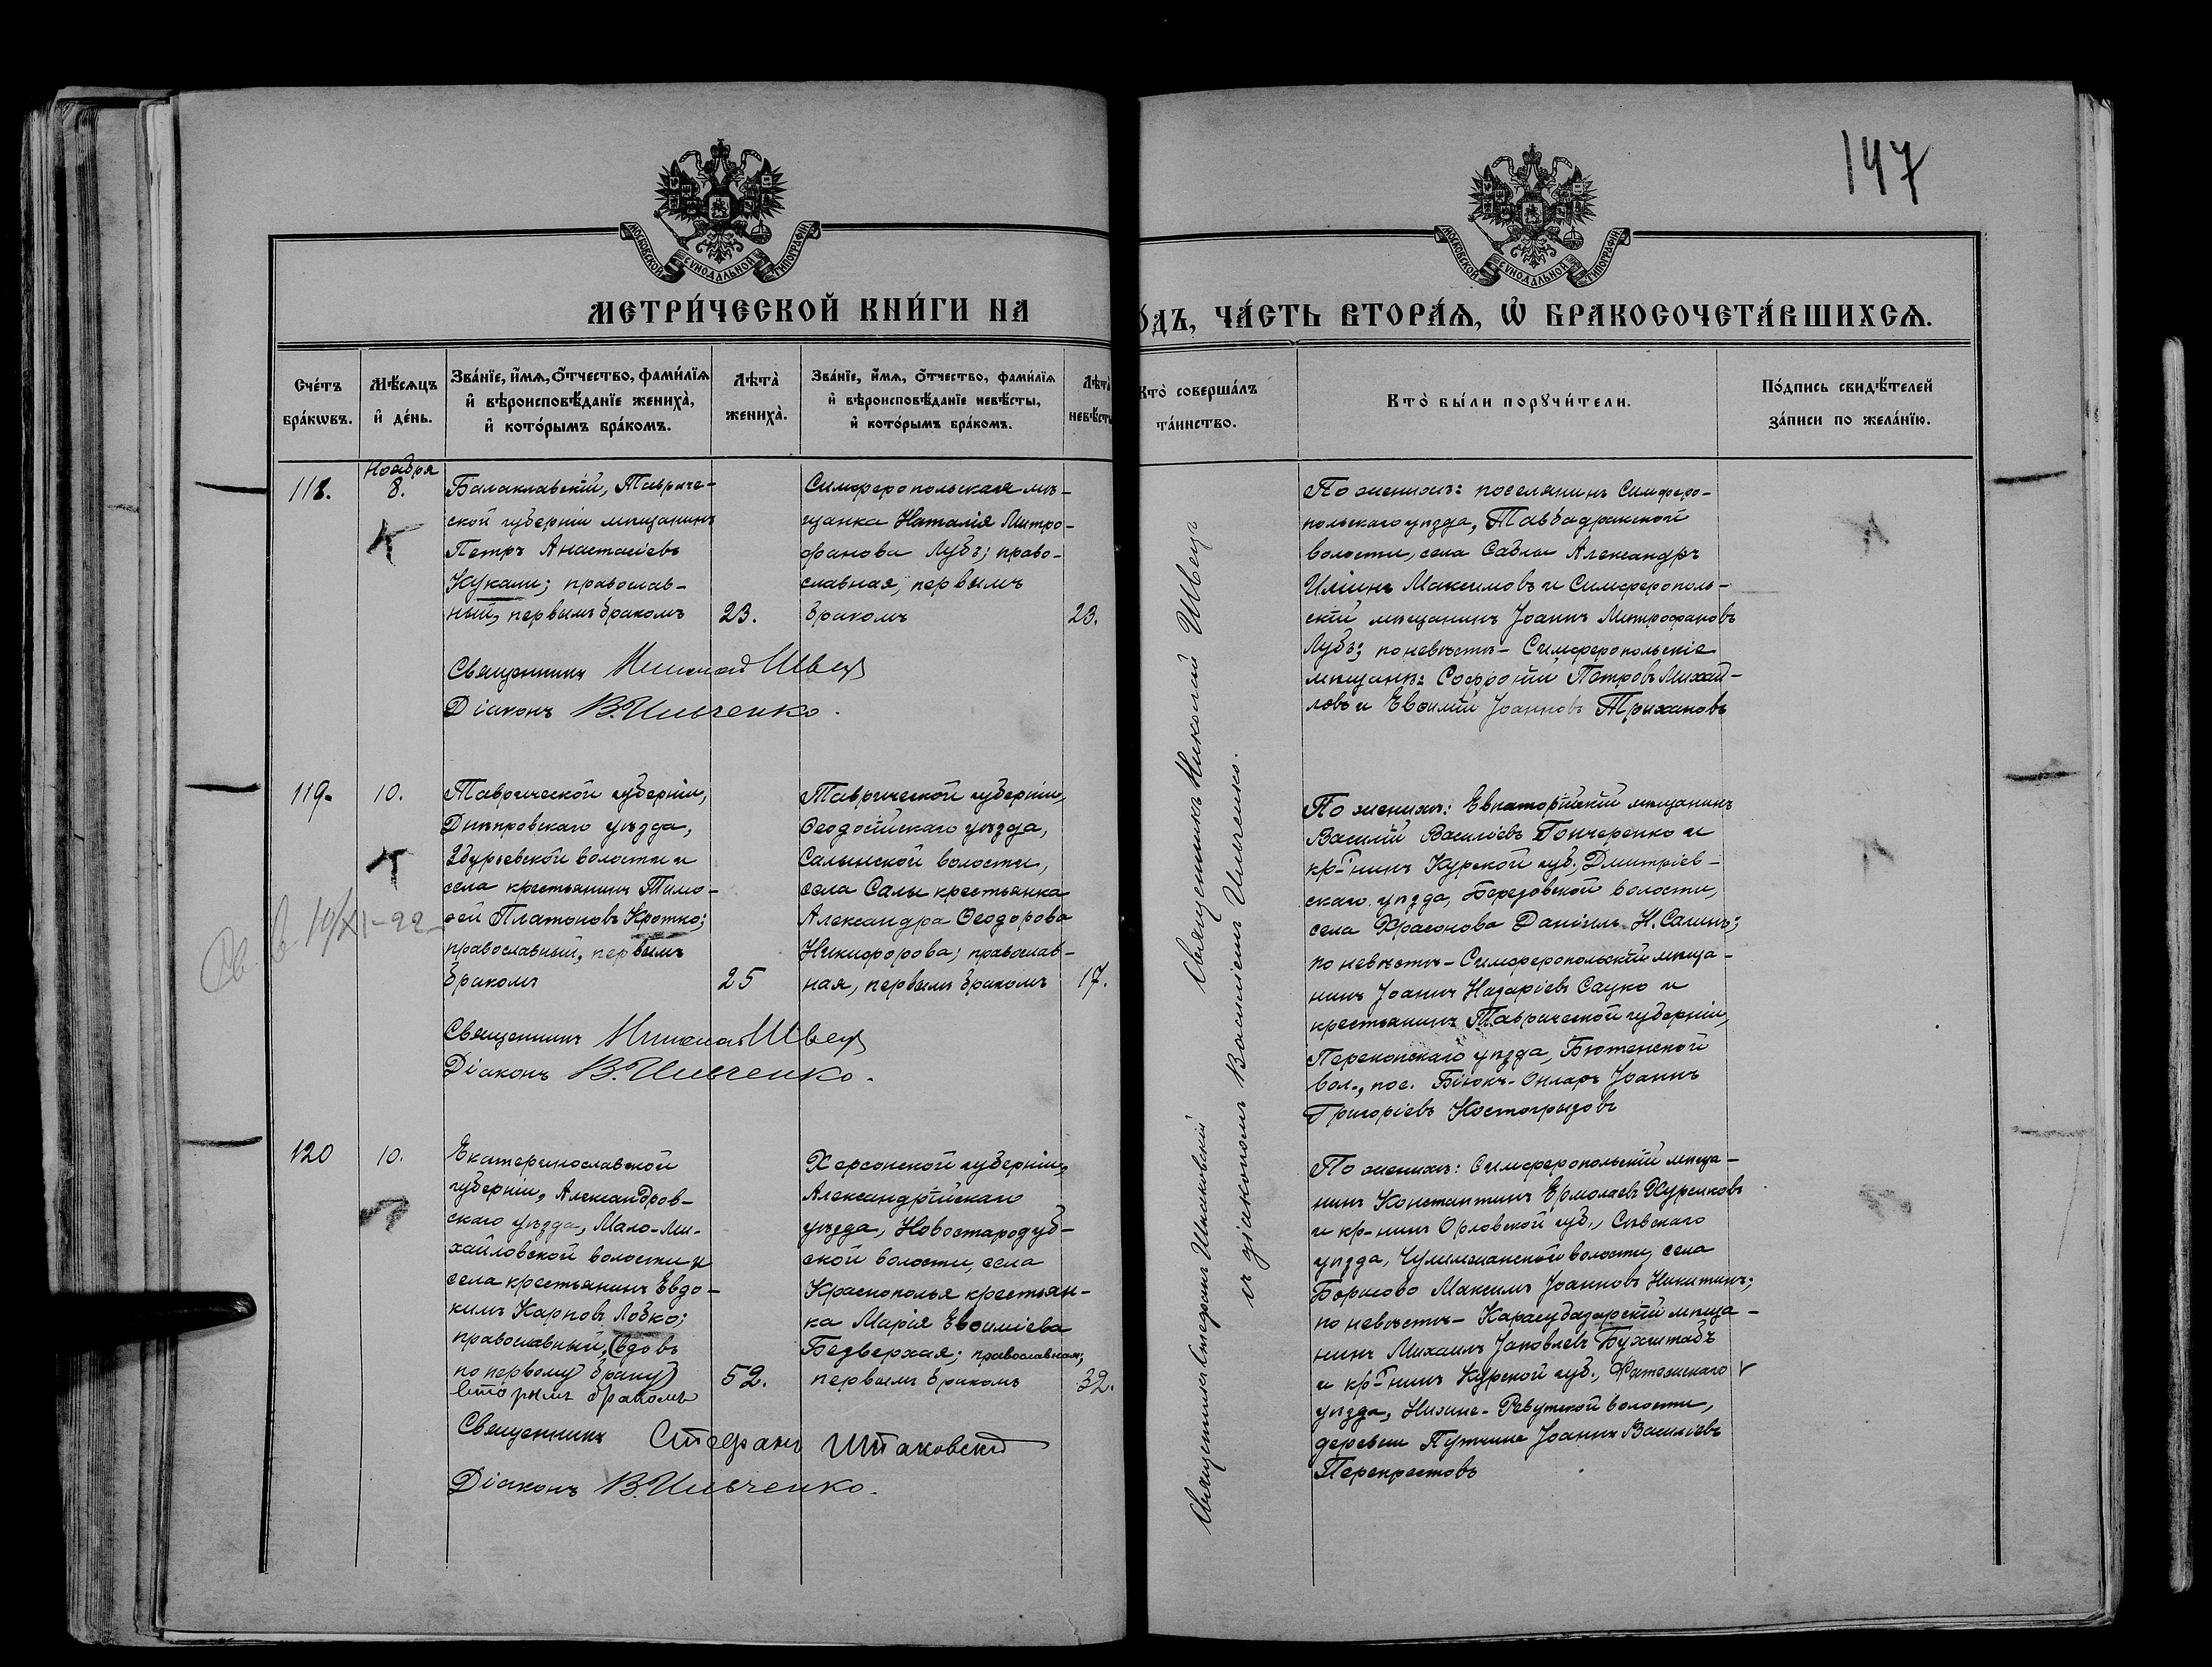 147
МОСКОВСКОЙ СУНОДАЛЬНОЙ ТИПОГРАФІИ
МОСКОВСКОЙ СУНОДАЛЬНОЙ ТИПОГРАФІИ
МЕТРИ́ЧЕСКОЙ КНИ́ГИ НА
О́ДЪ, ЧА́СТЬ ВТОРА́Ѧ, Ѽ БРАКОСОЧЕТА́ВШИХСѦ.
Сче́тъ
бра́кѡвъ.
Мѣ́сѧцъ
и҆ де́нь.
Зва́нїе, и҆́мѧ, ѻ҆́тчество, фами́лїѧ
и҆ вѣроисповѣ́данїе жениха̀,
и҆ кото́рымъ бра́комъ.
Лѣта̀
жениха̀.
Зва́нїе, и҆́мѧ, ѻ҆́тчество, фами́лїѧ
и҆ вѣроисповѣ́данїе невѣ́сты,
и҆ кото́рымъ бра́комъ.
Лѣта̀
невѣ́сты
Кто̀ соверша́лъ
та́инство.
Кто̀ бы́ли порꙋчи́тели.
По́дпись свидѣ́телей
за́писи по жела́нїю.
118.
Ноября
8.
Балаклавскій, Тавриче-
ской губерніи мѣщанинъ
Петръ Анастасіевъ
Кукали; православ-
ный, первымъ бракомъ
23.
Симферопольская мѣ-
щанка Наталія Митро-
фанова Лубъ; право-
славная, первымъ
бракомъ
23.
Священникъ Николай Швецъ
Діаконъ В. Ильченко.
По женихѣ: поселянинъ Симферо-
польскаго уѣзда,
волости, села Саблы Александръ
Иліинъ Максимовъ и Симферополь-
скій мѣщанинъ Іоаннъ Митрофановъ
Лубъ; по невѣстѣ - Симферопольскіе
мѣщане: Софроній Петровъ Михай-
ловъ и Евѳимій Іоанновъ Трихановъ
119.
10.
Таврической губерніи,
Днѣпровскаго уѣзда,
Збурьевской волости и
села крестьянинъ Тимо-
ѳей Платоновъ Кротко;
православный, первымъ
бракомъ
25
Таврической губерніи,
Ѳеодосійскаго уѣзда,
Салынской волости,
села Салы крестьянка
Александра Ѳеодорова
Никифорова; православ-
ная, первымъ бракомъ
17.
10/XI-22
Священникъ Николай Швецъ
Діаконъ В. Ильченко.
По женихѣ: Евпаторійскій мѣщанинъ
Василій Василіевъ Гончеренко и
кр-нинъ Курской губ., Дмитріев-
скаго уѣзда, Березовской волости,
села Даніилъ Н. Салинъ;
по невѣстѣ - Симферопольскій мѣща-
нинъ Іоаннъ Назаріевъ Сацко и
крестьянинъ Таврической губерніи,
Перекопскаго уѣзда, Бютенской
вол., пос. Біюкъ-Онларъ Іоаннъ
Григоріевъ Костогрызовъ
120
10.
Екатеринославской
губерніи, Александров-
скаго уѣзда, Мало-Ми-
хайловской волости и
села крестьянинъ Евдо-
кимъ Карповъ Лобко;
православный, (вдовъ
по первому браку)
вторымъ бракомъ
52.
Херсонской губерніи,
Александрійскаго
уѣзда, Новостародуб-
ской волости, села
Краснополья крестьян-
ка Марія Евѳиміева
Безверхая; православная;
первымъ бракомъ
32.
Священникъ Стефанъ
Діаконъ В. Ильченко.
По женихѣ: Симферопольскій мѣща-
нинъ Константинъ Ермолаевъ
и кр-нинъ Орловской губ., Сѣвскаго
уѣзда, волости, села
Борисово Максимъ Іоанновъ Никитинъ;
по невѣстѣ - Карасубазарскій мѣща-
нинъ Михаилъ Іаковлевъ Бухштабъ
и кр-нинъ Курской губ., Фатежскаго
уѣзда, Нижне-Ревутской волости,
деревни Іоаннъ Василіевъ
Перекрестовъ
Священникъ Николай Швецъ
Священникъ Стефанъ
съ діакономъ Василіемъ Ильченко.